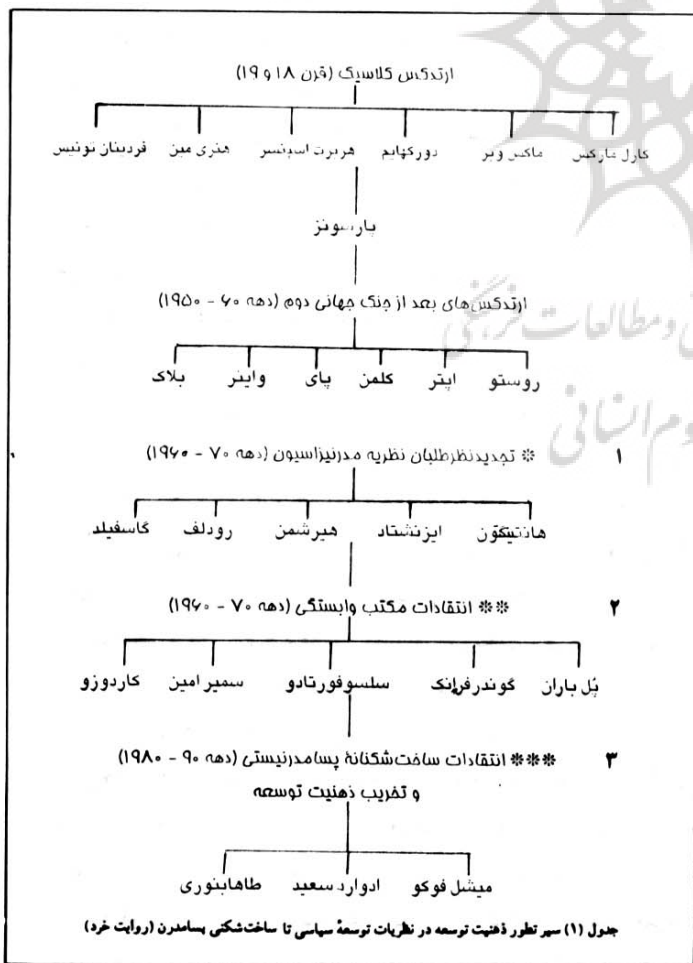 ارتدکس کلاسیک (قرن ۱۸ و ۱۹)
کارل مارکس ماکس وبر دورکهایم هربرت اسپنسر هنری مین فردینان تونیس
پارسونز
ارتدکس‌های بعد از جنگ جهانی دوم (دهه ۶۰ - ۱۹۵۰)
روستو اپتر کلمن پای واینر بلاک
۱ * تجدیدنظرطلبان نظریه مدرنیزاسیون (دهه ۷۰ - ۱۹۶۰)
هانتیگتون ایزنشتاد هیرشمن رودلف گاسفیلد
۲ ** انتقادات مکتب وابستگی (دهه ۷۰ - ۱۹۶۰)
پُل باران گوندرفرانک سلسوفورتادو سمیر امین کاردوزو
۳ *** انتقادات ساخت‌شکنانهٔ پسامدرنیستی (دهه ۹۰ - ۱۹۸۰)
و تخریب ذهنیت توسعه
میشل فوکو ادوارد سعید طاهابنوری
جدول (۱) سیر تطور ذهنیت توسعه در نظریات توسعهٔ سیاسی تا ساخت‌شکنی پسامدرن (روایت خرد)
و مطالعات فرهنگی
علوم انسانی